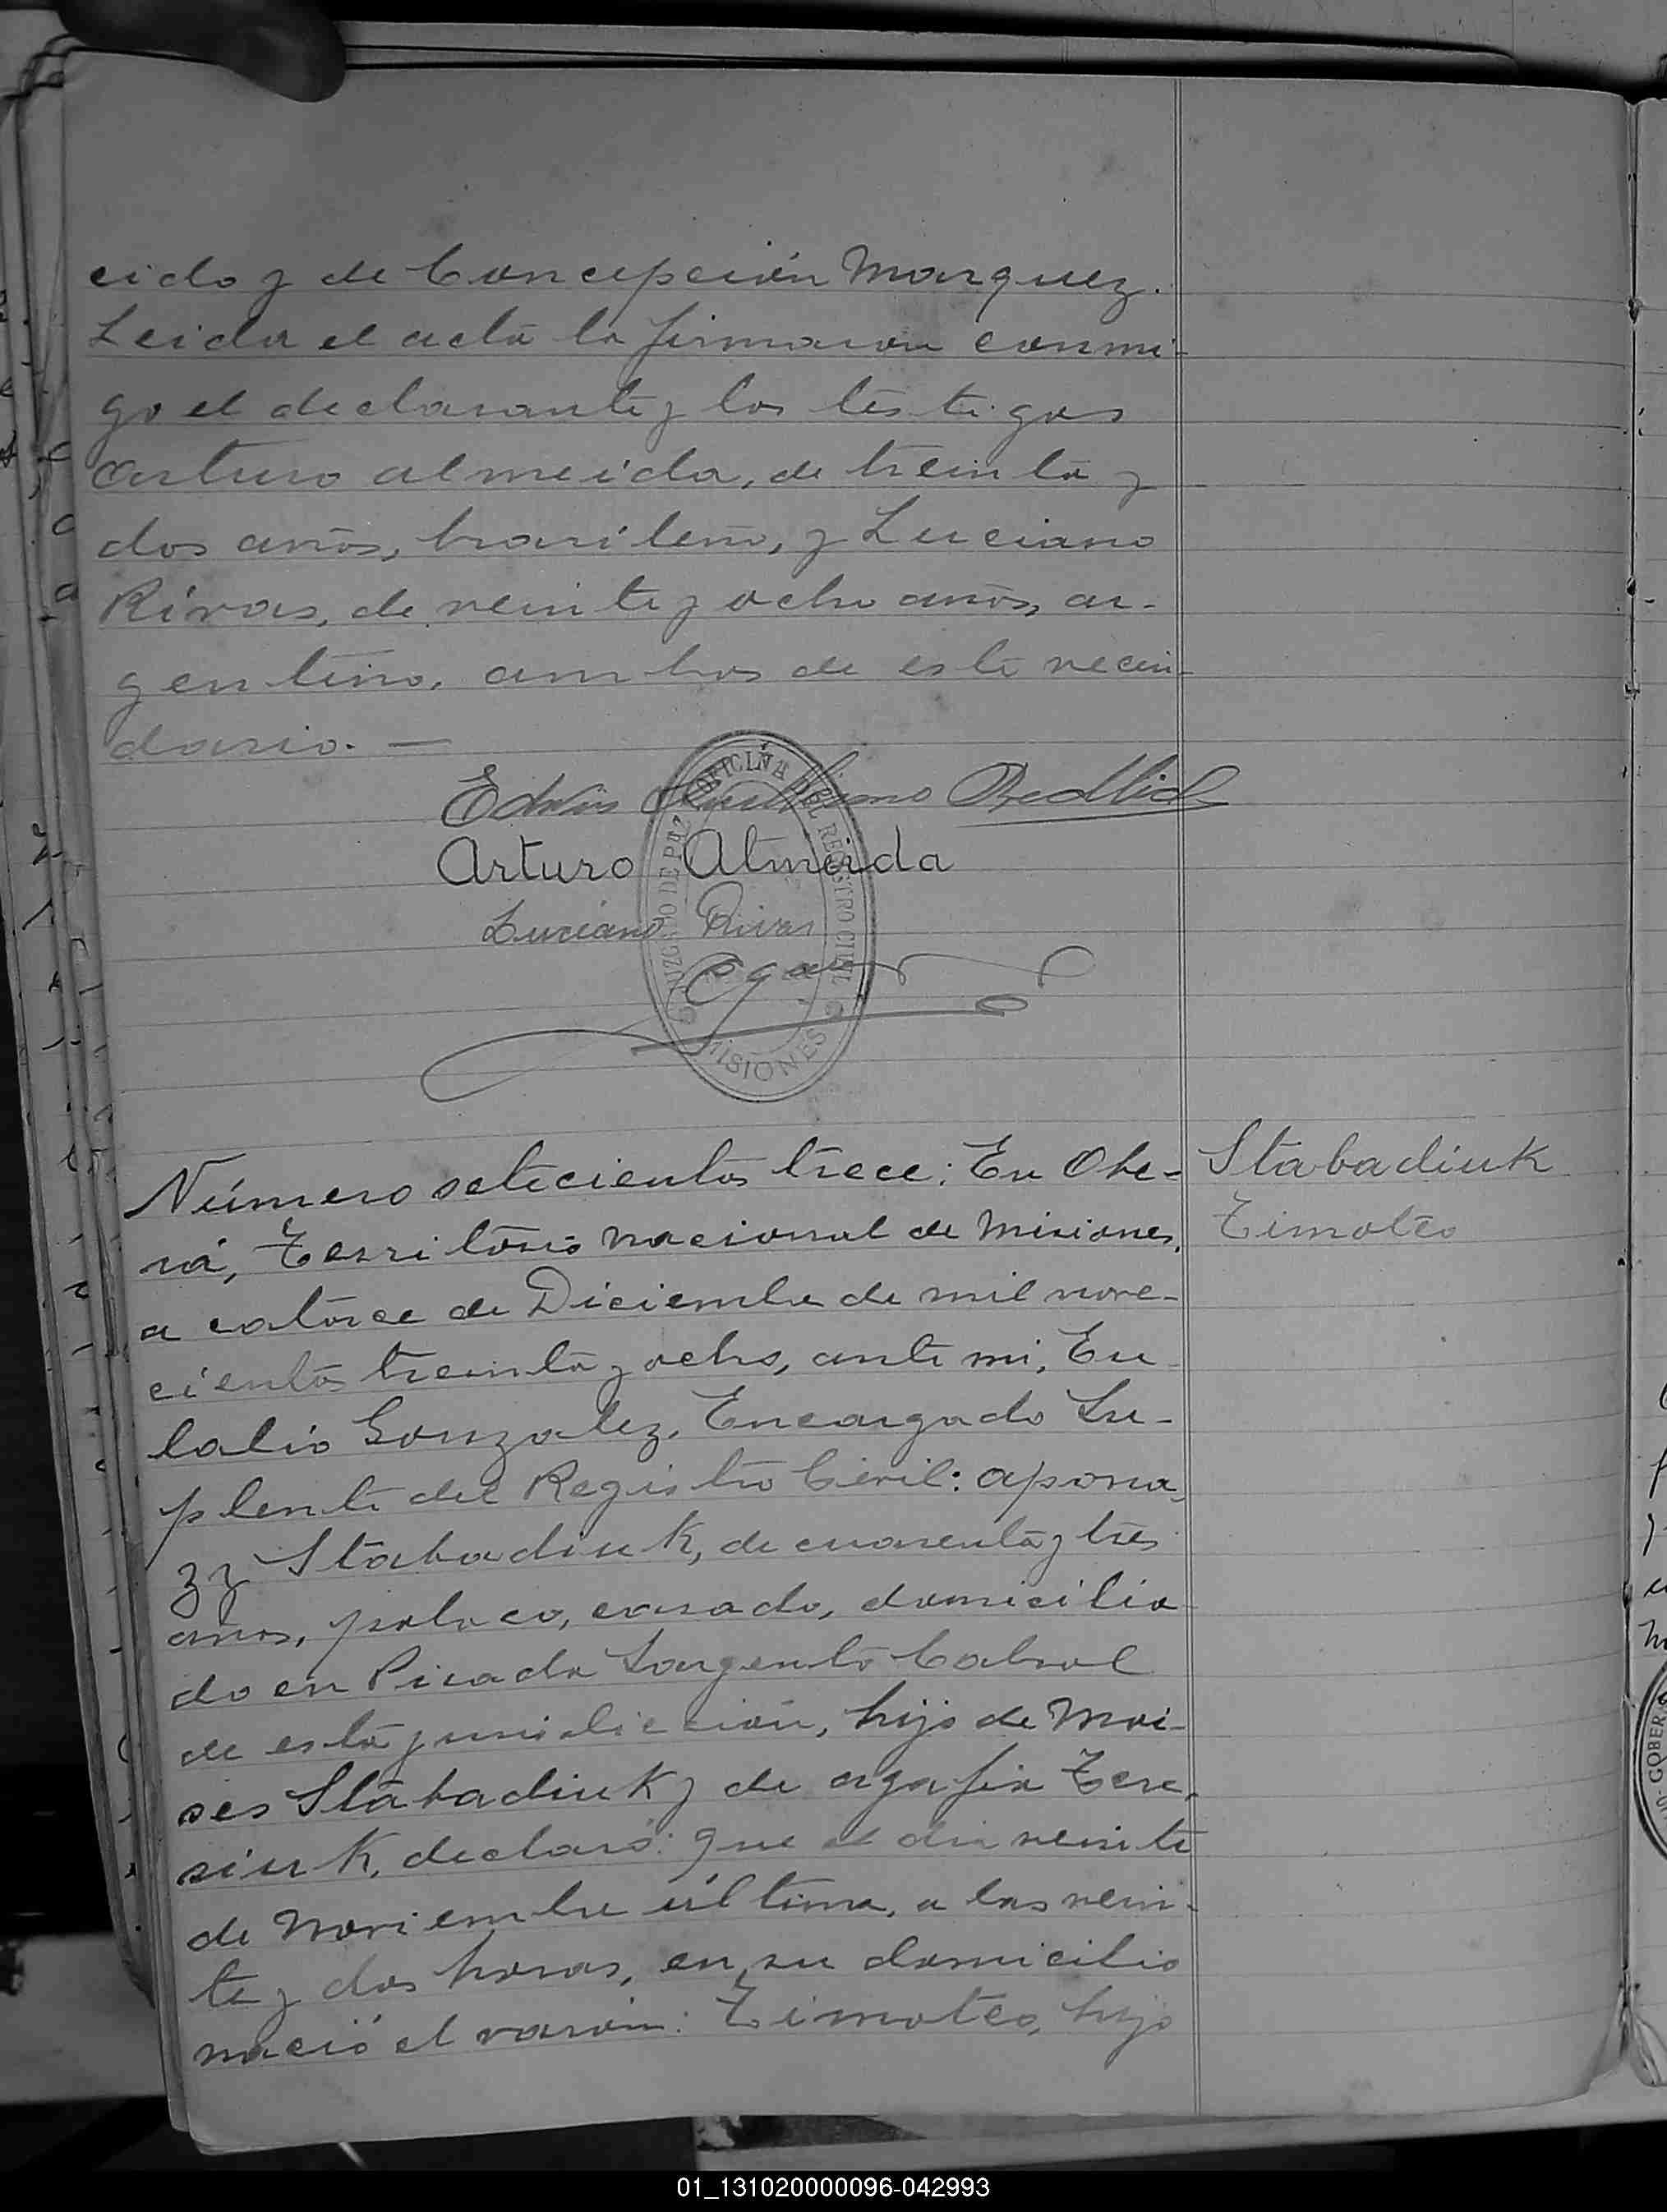 cido y de Concepción Marquez.
Leida el acta la firmaron conmi-
go el declarante y los testigos
Arturo Almeida, de treinta y
dos años, brasileño, y Luciano
Rivas, de veinte y ocho años, ar-
gentino, ambos de este vecin-
dario. —
Edwin Guillermo Redlich
Arturo Almeida
Luciano Rivas
JUZGADO DE PAZ OFICINA DEL REGISTRO CIVIL
MISIONES
Número setecientos trece: En Obe-
rá, Territorio nacional de Misiones,
a catorce de Diciembre de mil nove-
cientos treinta y ocho, ante mi, Eu
lalio Gonzalez, Encargado Su-
plente del Registro Civil: Apona,
zy Stabadiuk, de cuarenta y tres
años, polaco, casado, domicilia
do en Picada Sargento Cabral
de esta jurisdicción, hijo de Moi-
ses Stabadiuk y de Agafia Tere,
siuk, declaró: que el dia veinte
de Noviembre último, a las vein-
te y dos horas, en su domicilio
nació el varón: Timoteo, hijo
Stabadiuk
Timoteo
GOBER
01_131020000096-042993